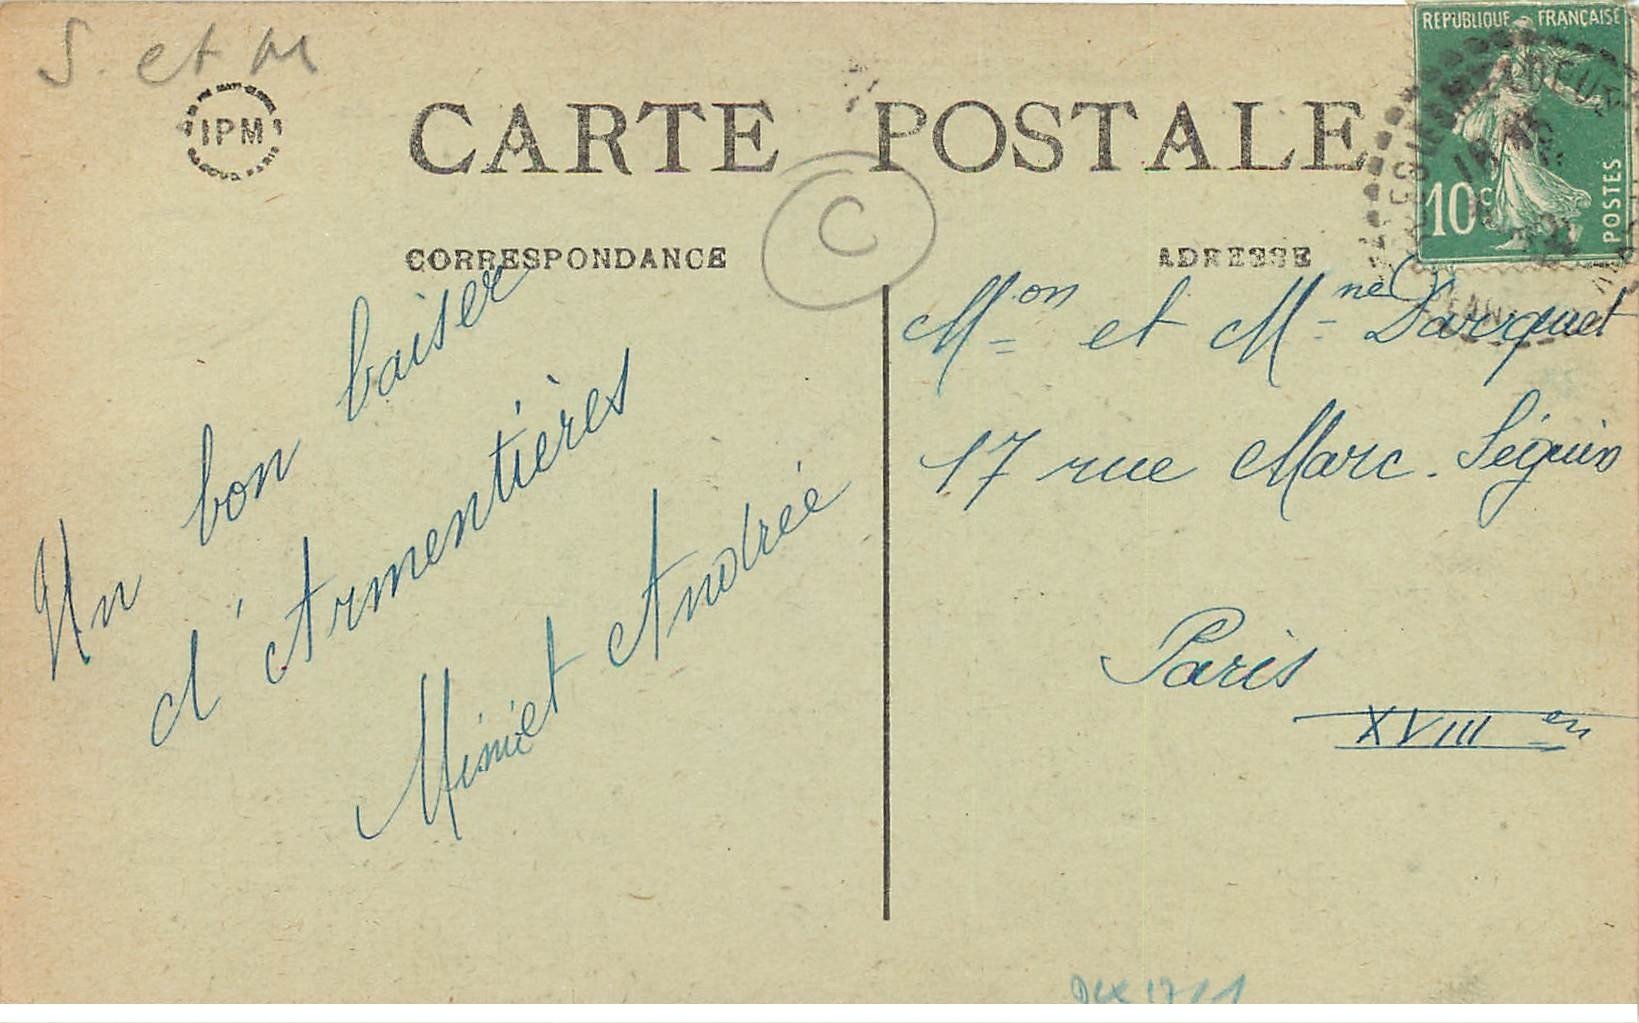 S. et M
IPM
CARTE POSTALE
CORRESPONDANCE
ADRESSE
REPUBLIQUE FRANÇAISE
10c
POSTES
Un bon baiser
d'Armentières
Mimi et Andrée
Mon et Mme Darquet
17 rue Marc. Séguin
Paris
XVIII en
C